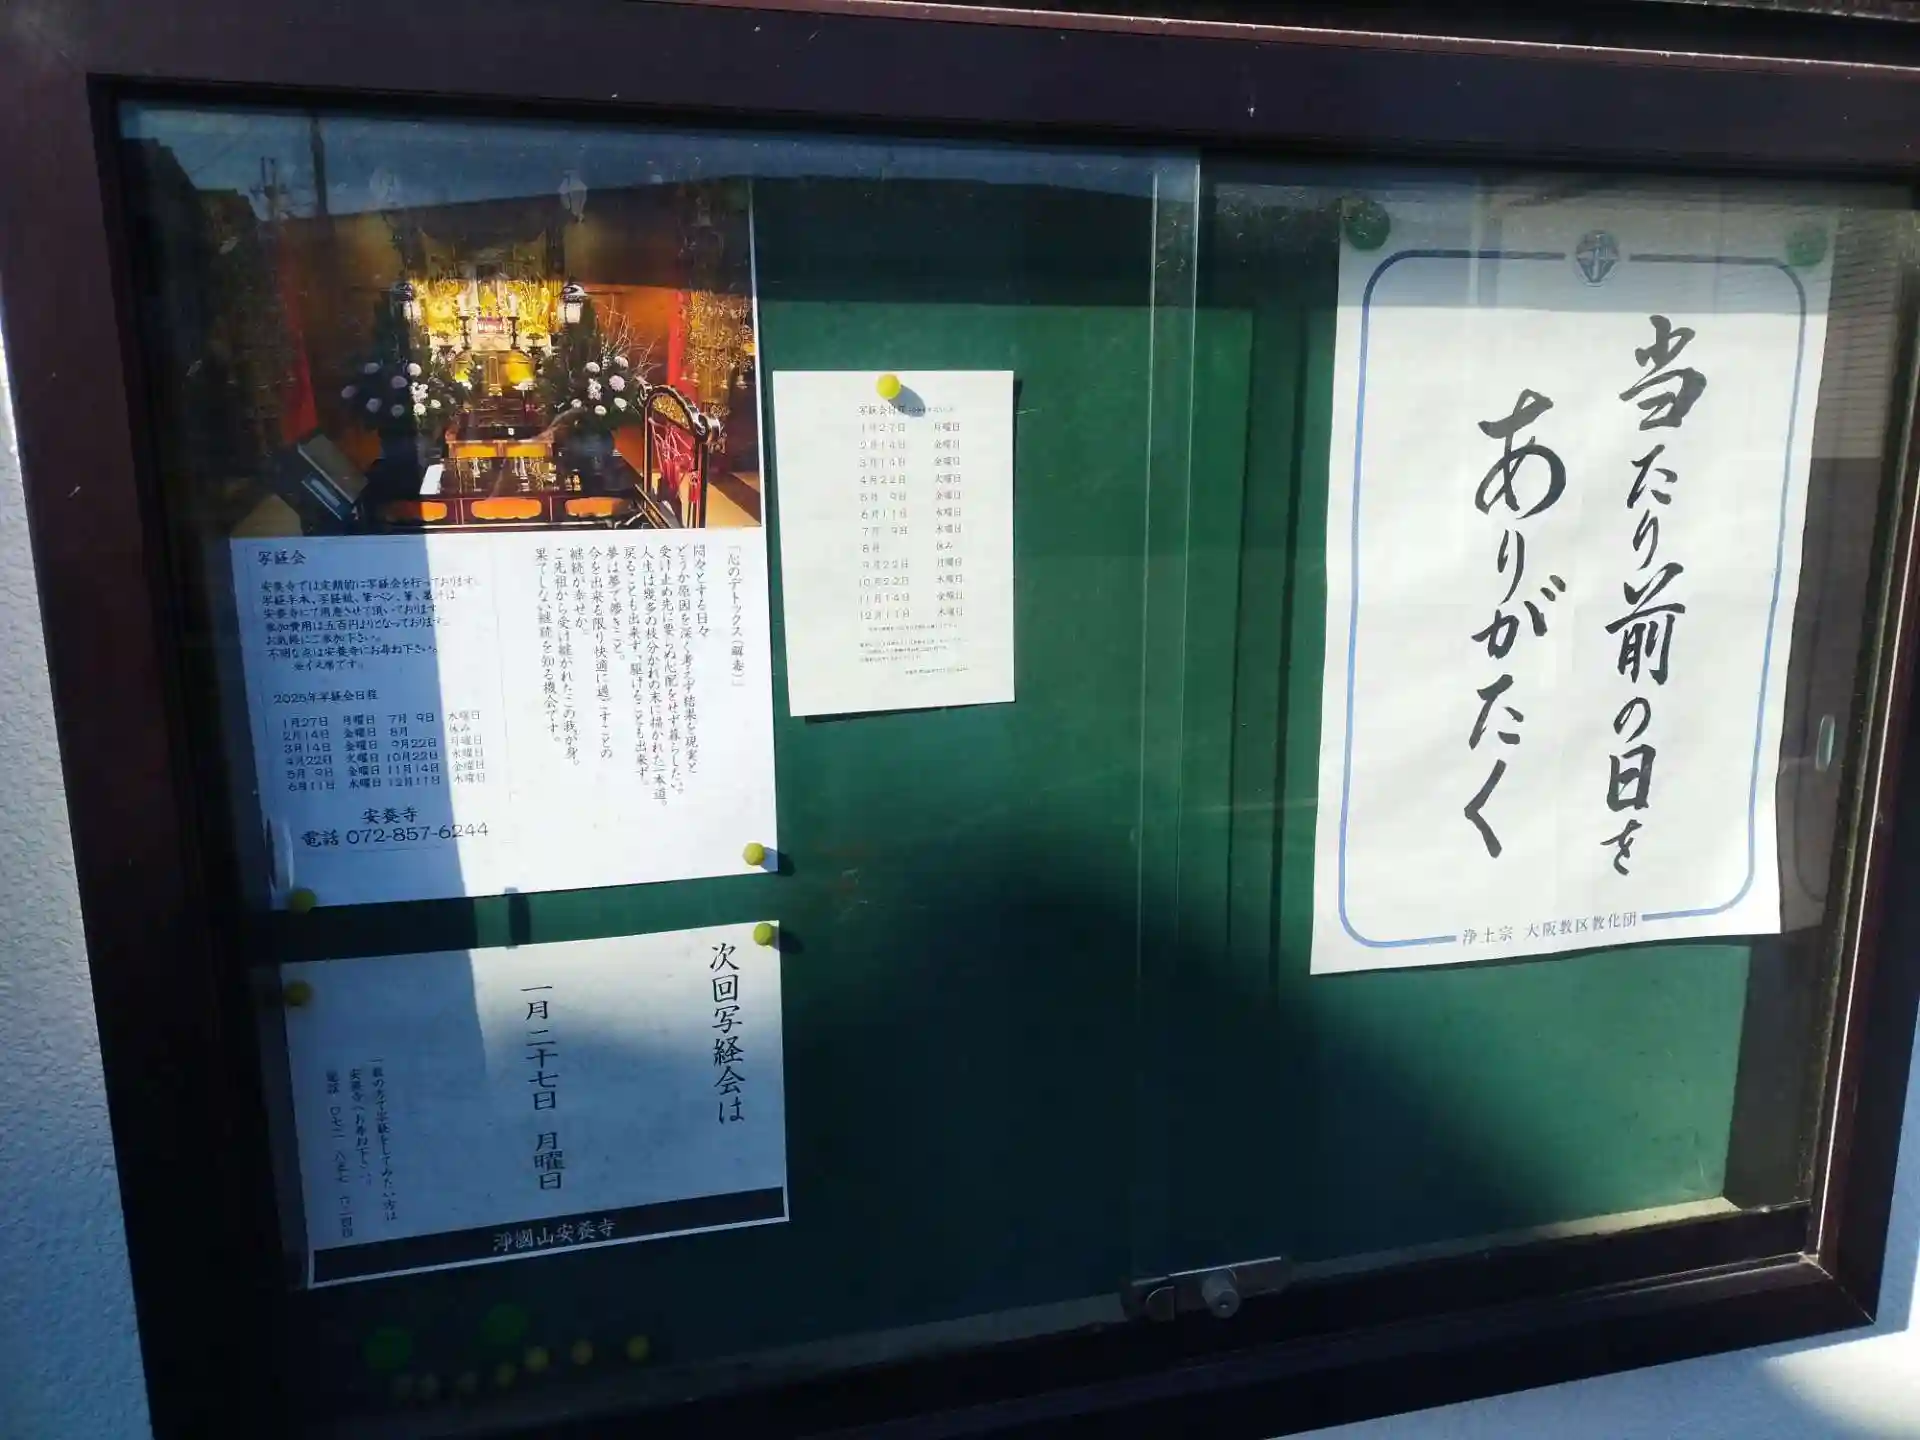 当たり前の日を
ありがたく
浄土宗 大阪教区教化団
写経会
安養寺では定期的に写経会を行っております。
写経手本、写経紙、筆ペン、筆、墨汁は
安養寺にて用意させて頂いております。
参加費用は五百円よりとなっております。
お気軽にご参加下さい。
不明な点は安養寺にお尋ね下さい。
※イス席です。
2025年写経会日程
1月27日 月曜日 7月 9日 水曜日
2月14日 金曜日 8月 休み
3月14日 金曜日 9月22日 月曜日
4月22日 火曜日 10月22日 水曜日
5月 9日 金曜日 11月14日 金曜日
6月11日 水曜日 12月11日 木曜日
安養寺
電話 072-857-6244
「心のデトックス(解毒)」
悶々とする日々
どうか原因を深く考えず結果を現実と
受け止め先に要らぬ心配をせず暮らしたい。
人生は幾多の枝分かれの末に描かれた一本道。
戻ることも出来ず、駆けることも出来ず。
夢は夢で儚きこと。
今を出来る限り快適に過ごすことの
継続が幸せか。
ご先祖から受け継がれたこの我が身。
果てしない継続を知る機会です。
写経会日程
1月27日 月曜日
2月14日 金曜日
3月14日 金曜日
4月22日 火曜日
5月 9日 金曜日
6月11日 水曜日
7月 9日 水曜日
8月 休み
9月22日 月曜日
10月22日 水曜日
11月14日 金曜日
12月11日 木曜日
次回写経会は
一月二十七日 月曜日
一般の方で写経をしてみたい方は
安養寺へお尋ね下さい。
電話 〇七二 八五七 六二四四
浄國山安養寺